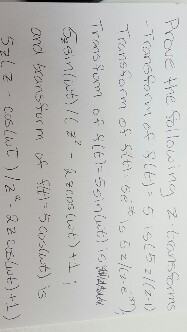 Prove the following z transforms
- Transform of f(t) = 5 is 5z/(z-1)
Transform of f(t) 5e^-t is 5z/(z-e^-T)
Transform of f(t) = 5 sin(wt) is
5z sin(wt)/(z² - 2z cos(wt) + 1;
and transform of f(t) = 5 cos(wt) is
5z(z - cos(wT)/z² - 2z cos(wt) + 1)